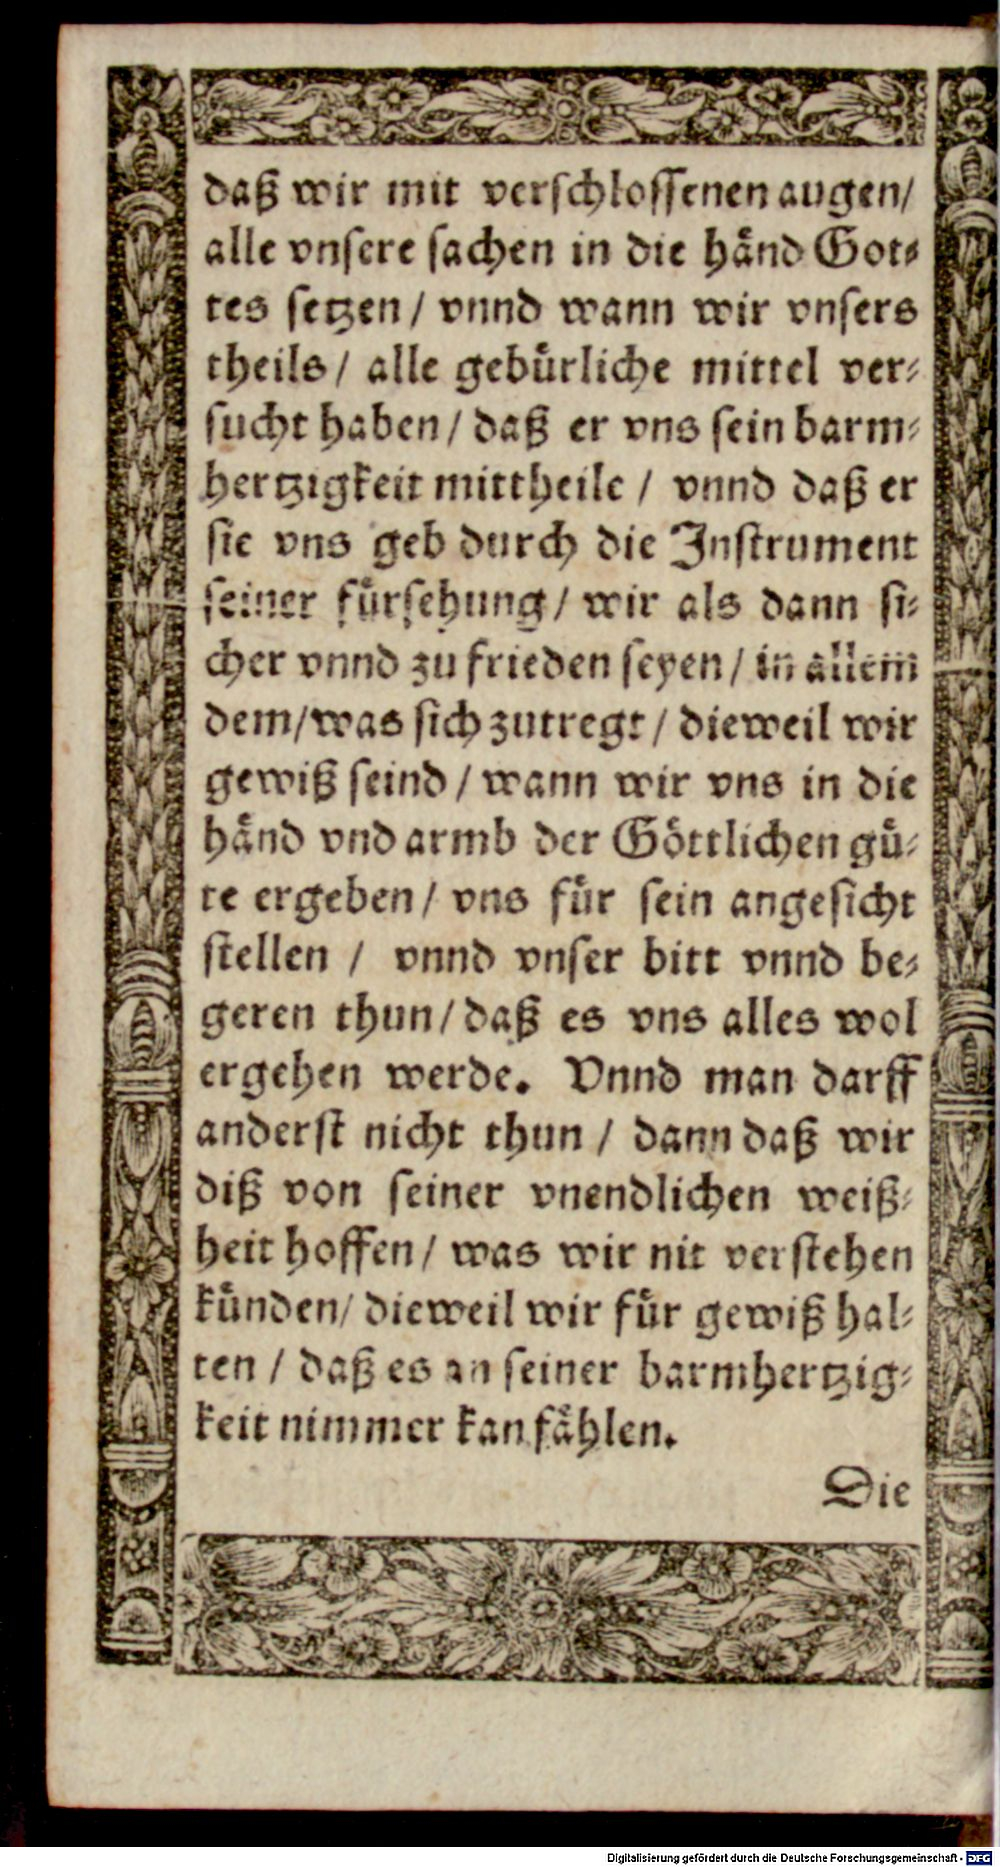 daß wir mit verschlossenen augen/
alle vnsere sachen in die händ Got⸗
tes setzen / vnnd wann wir vnsers
theils / alle gebürliche mittel ver⸗
sucht haben / daß er vns sein barm⸗
hertzigkeit mittheile / vnnd daß er
sie vns geb durch die Instrument
seiner fürsehung / wir als dann si⸗
cher vnnd zu frieden seyen / in allem
dem/was sich zutregt / dieweil wir
gewiß seind / wann wir vns in die
händ vnd armb der Göttlichen gü⸗
te ergeben / vns für sein angesicht
stellen / vnnd vnser bitt vnnd be⸗
geren thun / daß es vns alles wol
ergehen werde. Vnnd man darff
anderst nicht thun / dann daß wir
diß von seiner vnendlichen weiß⸗
heit hoffen / was wir nit verstehen
künden/ dieweil wir für gewiß hal⸗
ten / daß es an seiner barmhertzig⸗
keit nimmer kan fählen.
Die
Digitalisierung gefördert durch die Deutsche Forschungsgemeinschaft - DFG